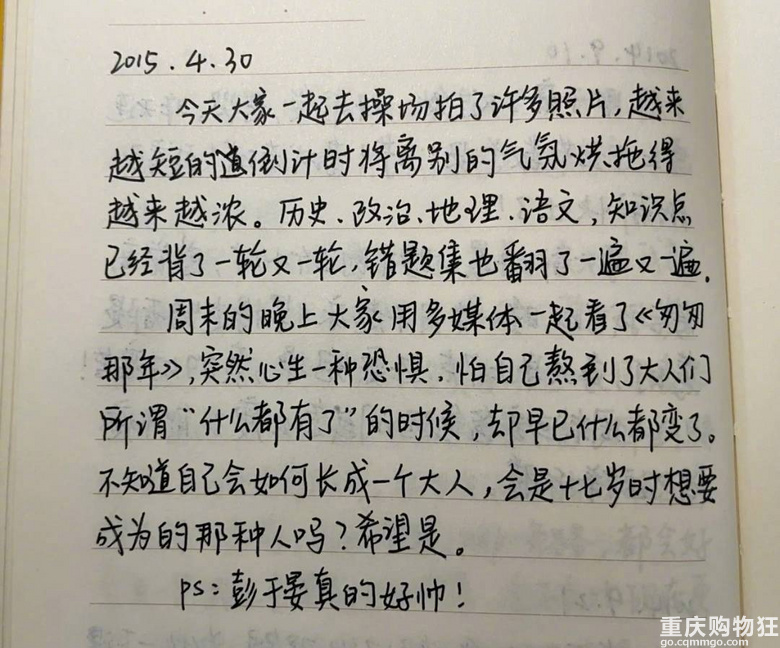 2015.4.30
今天大家一起去操场拍了许多照片,越来
越短的道倒计时将离别的气氛烘拖得
越来越浓。历史、政治、地理、语文,知识点
已经背了一轮又一轮,错题集也翻了一遍又一遍.
周末的晚上大家用多媒体一起看了《匆匆
那年》,突然心生一种恐惧.怕自己熬到了大人们
所谓“什么都有了”的时候,却早已什么都变了。
不知道自己会如何长成一个大人,会是十七岁时想要
成为的那种人吗?希望是。
ps:彭于晏真的好帅!
重庆购物狂
go.cqmmgo.com